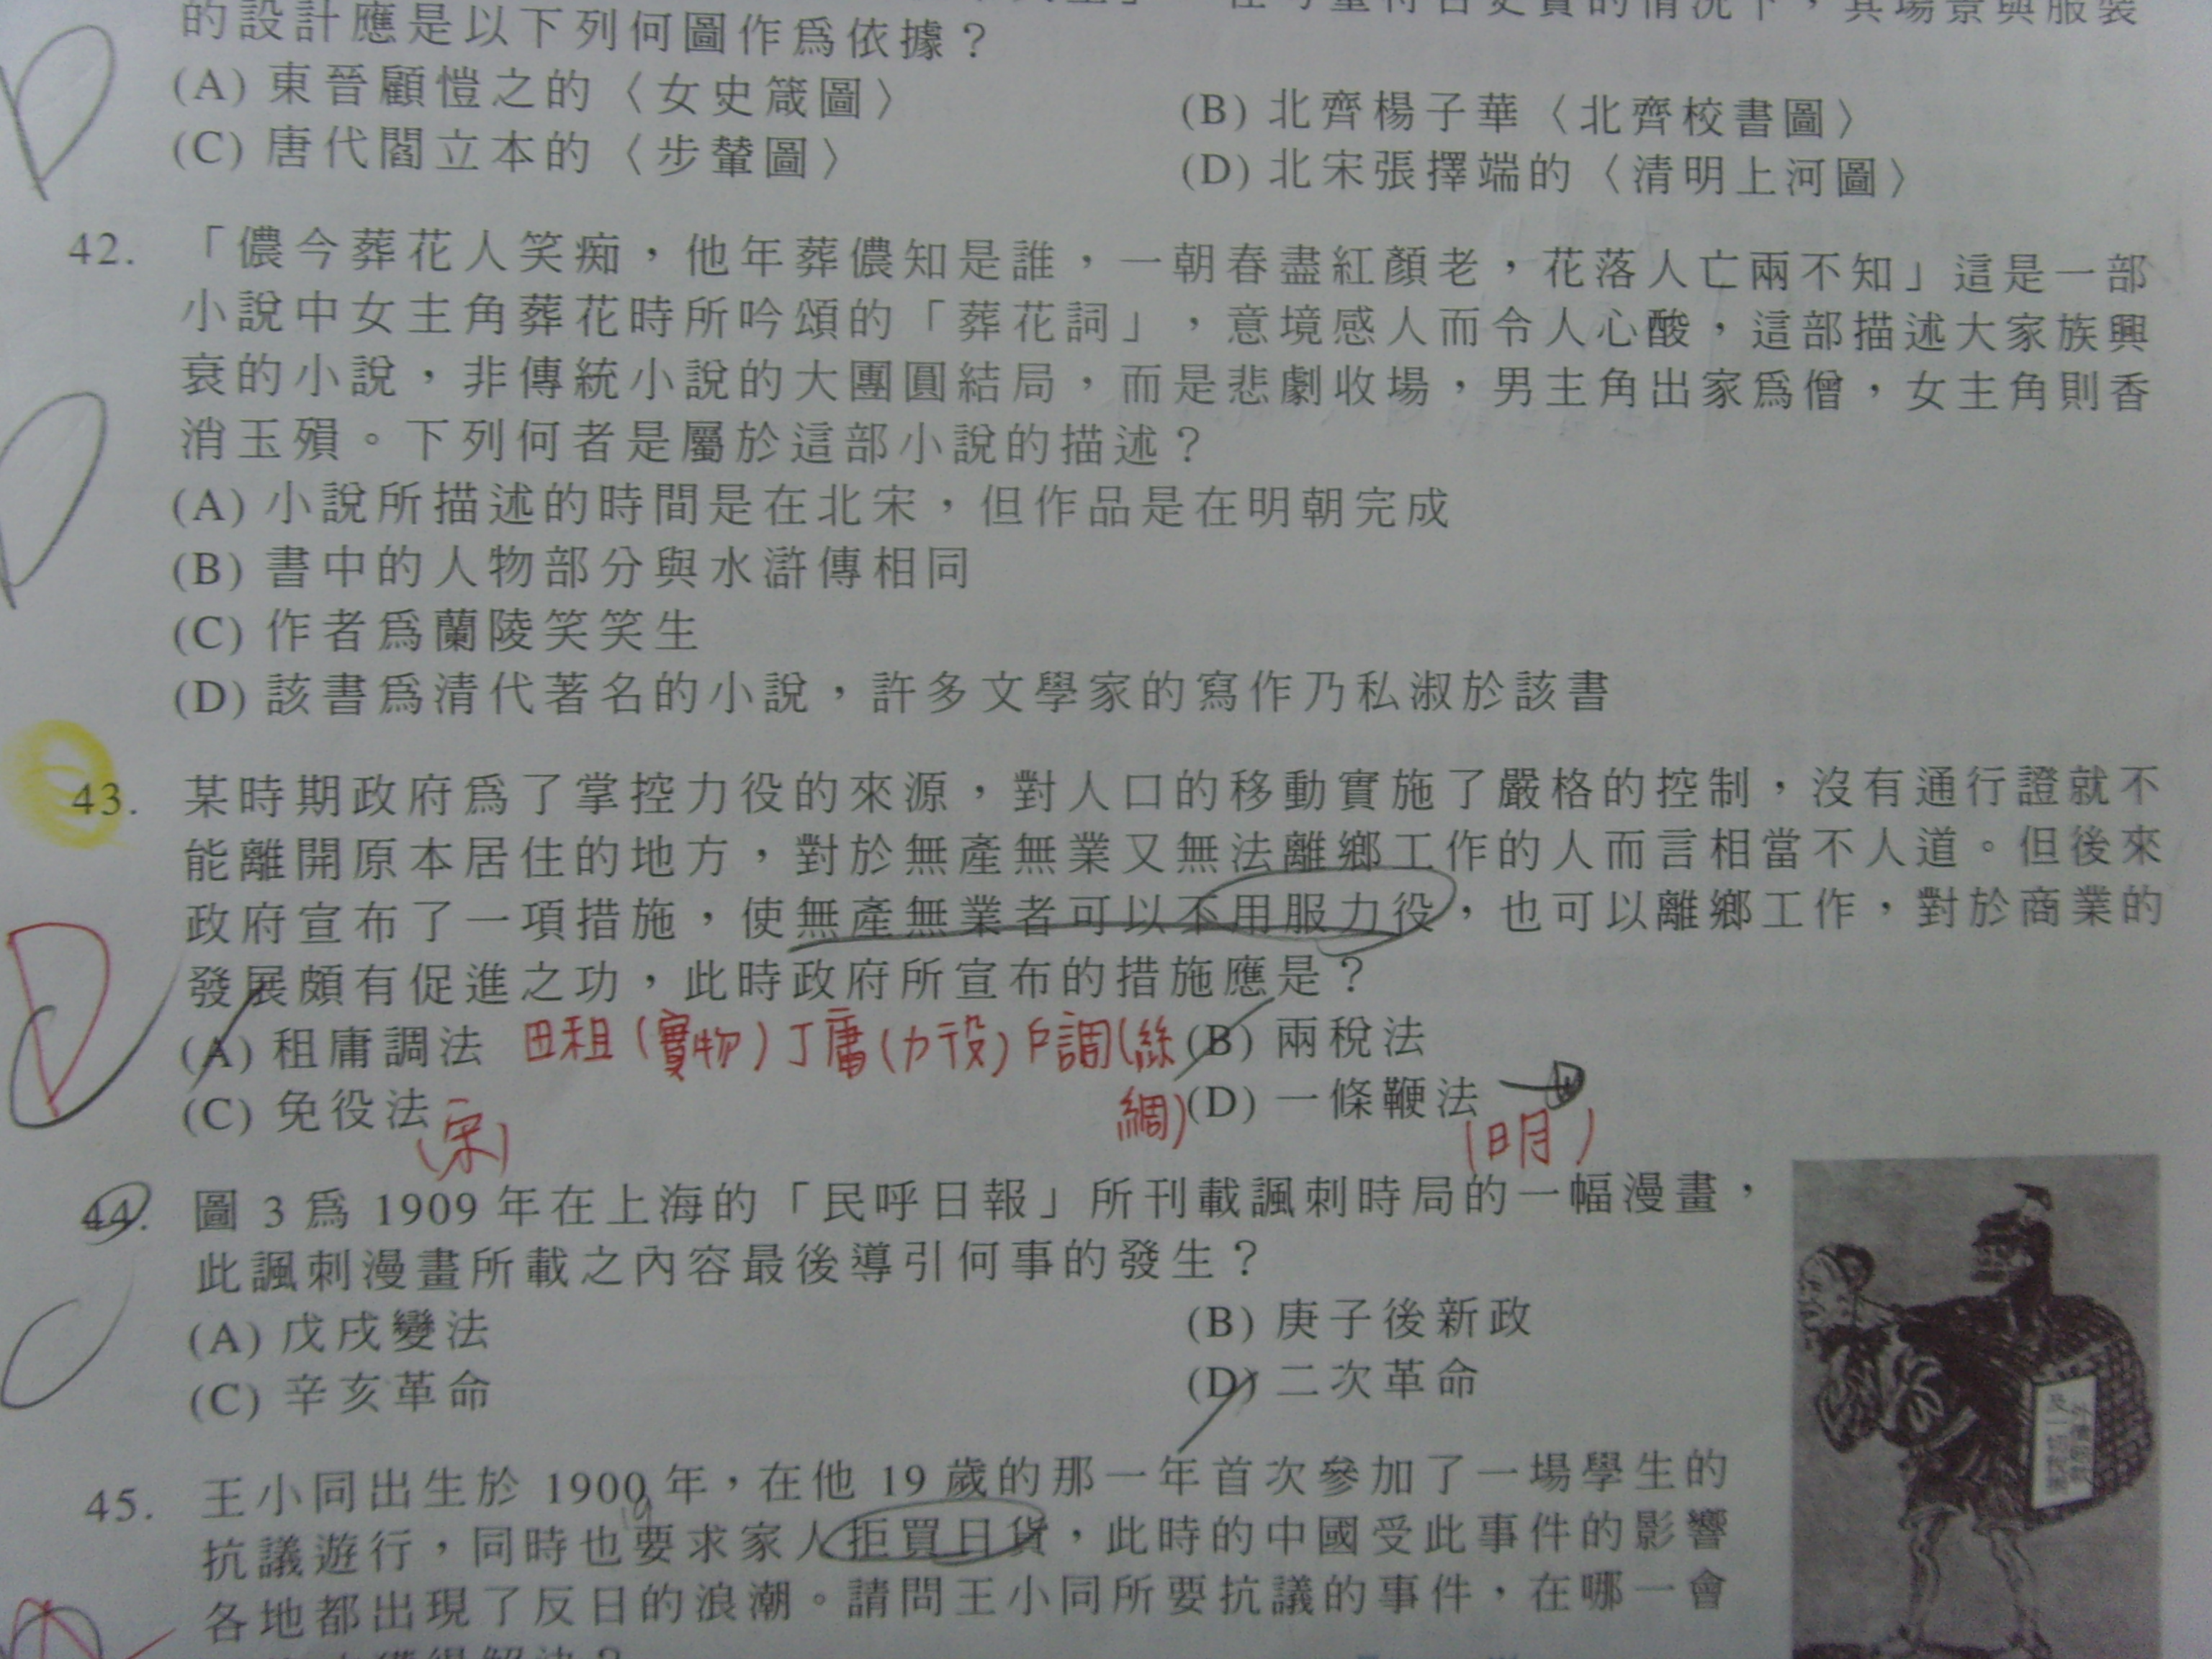 的設計應是以下列何圖作為依據？
(A) 東晉顧愷之的〈女史箴圖〉
(B) 北齊楊子華〈北齊校書圖〉
(C) 唐代閻立本的〈步輦圖〉
(D) 北宋張擇端的〈清明上河圖〉
42. 「儂今葬花人笑痴，他年葬儂知是誰，一朝春盡紅顏老，花落人亡兩不知」這是一部
小說中女主角葬花時所吟頌的「葬花詞」，意境感人而令人心酸，這部描述大家族興
衰的小說，非傳統小說的大團圓結局，而是悲劇收場，男主角出家為僧，女主角則香
消玉殞。下列何者是屬於這部小說的描述？
(A) 小說所描述的時間是在北宋，但作品是在明朝完成
(B) 書中的人物部分與水滸傳相同
(C) 作者為蘭陵笑笑生
(D) 該書為清代著名的小說，許多文學家的寫作乃私淑於該書
43. 某時期政府為了掌控力役的來源，對人口的移動實施了嚴格的控制，沒有通行證就不
能離開原本居住的地方，對於無產無業又無法離鄉工作的人而言相當不人道。但後來
政府宣布了一項措施，使無產無業者可以不用服力役，也可以離鄉工作，對於商業的
發展頗有促進之功，此時政府所宣布的措施應是？
(A) 租庸調法 田租(實物)丁庸(力役)戶調(絲
綢)
(B) 兩稅法
(C) 免役法
(宋)
(D) 一條鞭法
(明)
44. 圖 3 為 1909 年在上海的「民呼日報」所刊載諷刺時局的一幅漫畫，
此諷刺漫畫所載之內容最後導引何事的發生？
(A) 戊戌變法
(B) 庚子後新政
(C) 辛亥革命
(D) 二次革命
45. 王小同出生於 1900 年，在他 19 歲的那一年首次參加了一場學生的
19
抗議遊行，同時也要求家人拒買日貨，此時的中國受此事件的影響
各地都出現了反日的浪潮。請問王小同所要抗議的事件，在哪一會